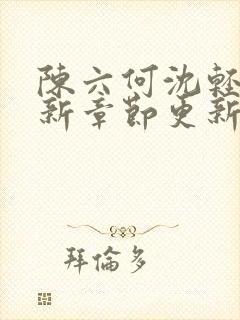 陳六何沈輕
新章節更新
拜倫多